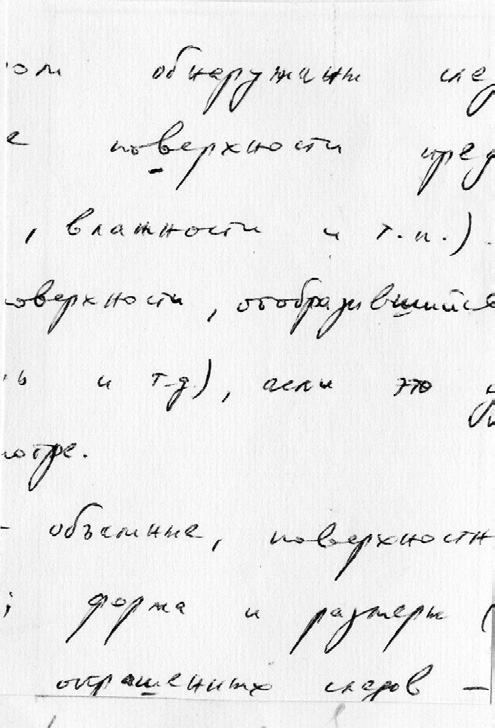 обнаружания след
поверхности пред
, влажности и т.п.).
поверхности, отобразившийся
ь и т.д), если это
отре.
- объемные, поверхностн
; форма и размеры (
окрашенных следов -